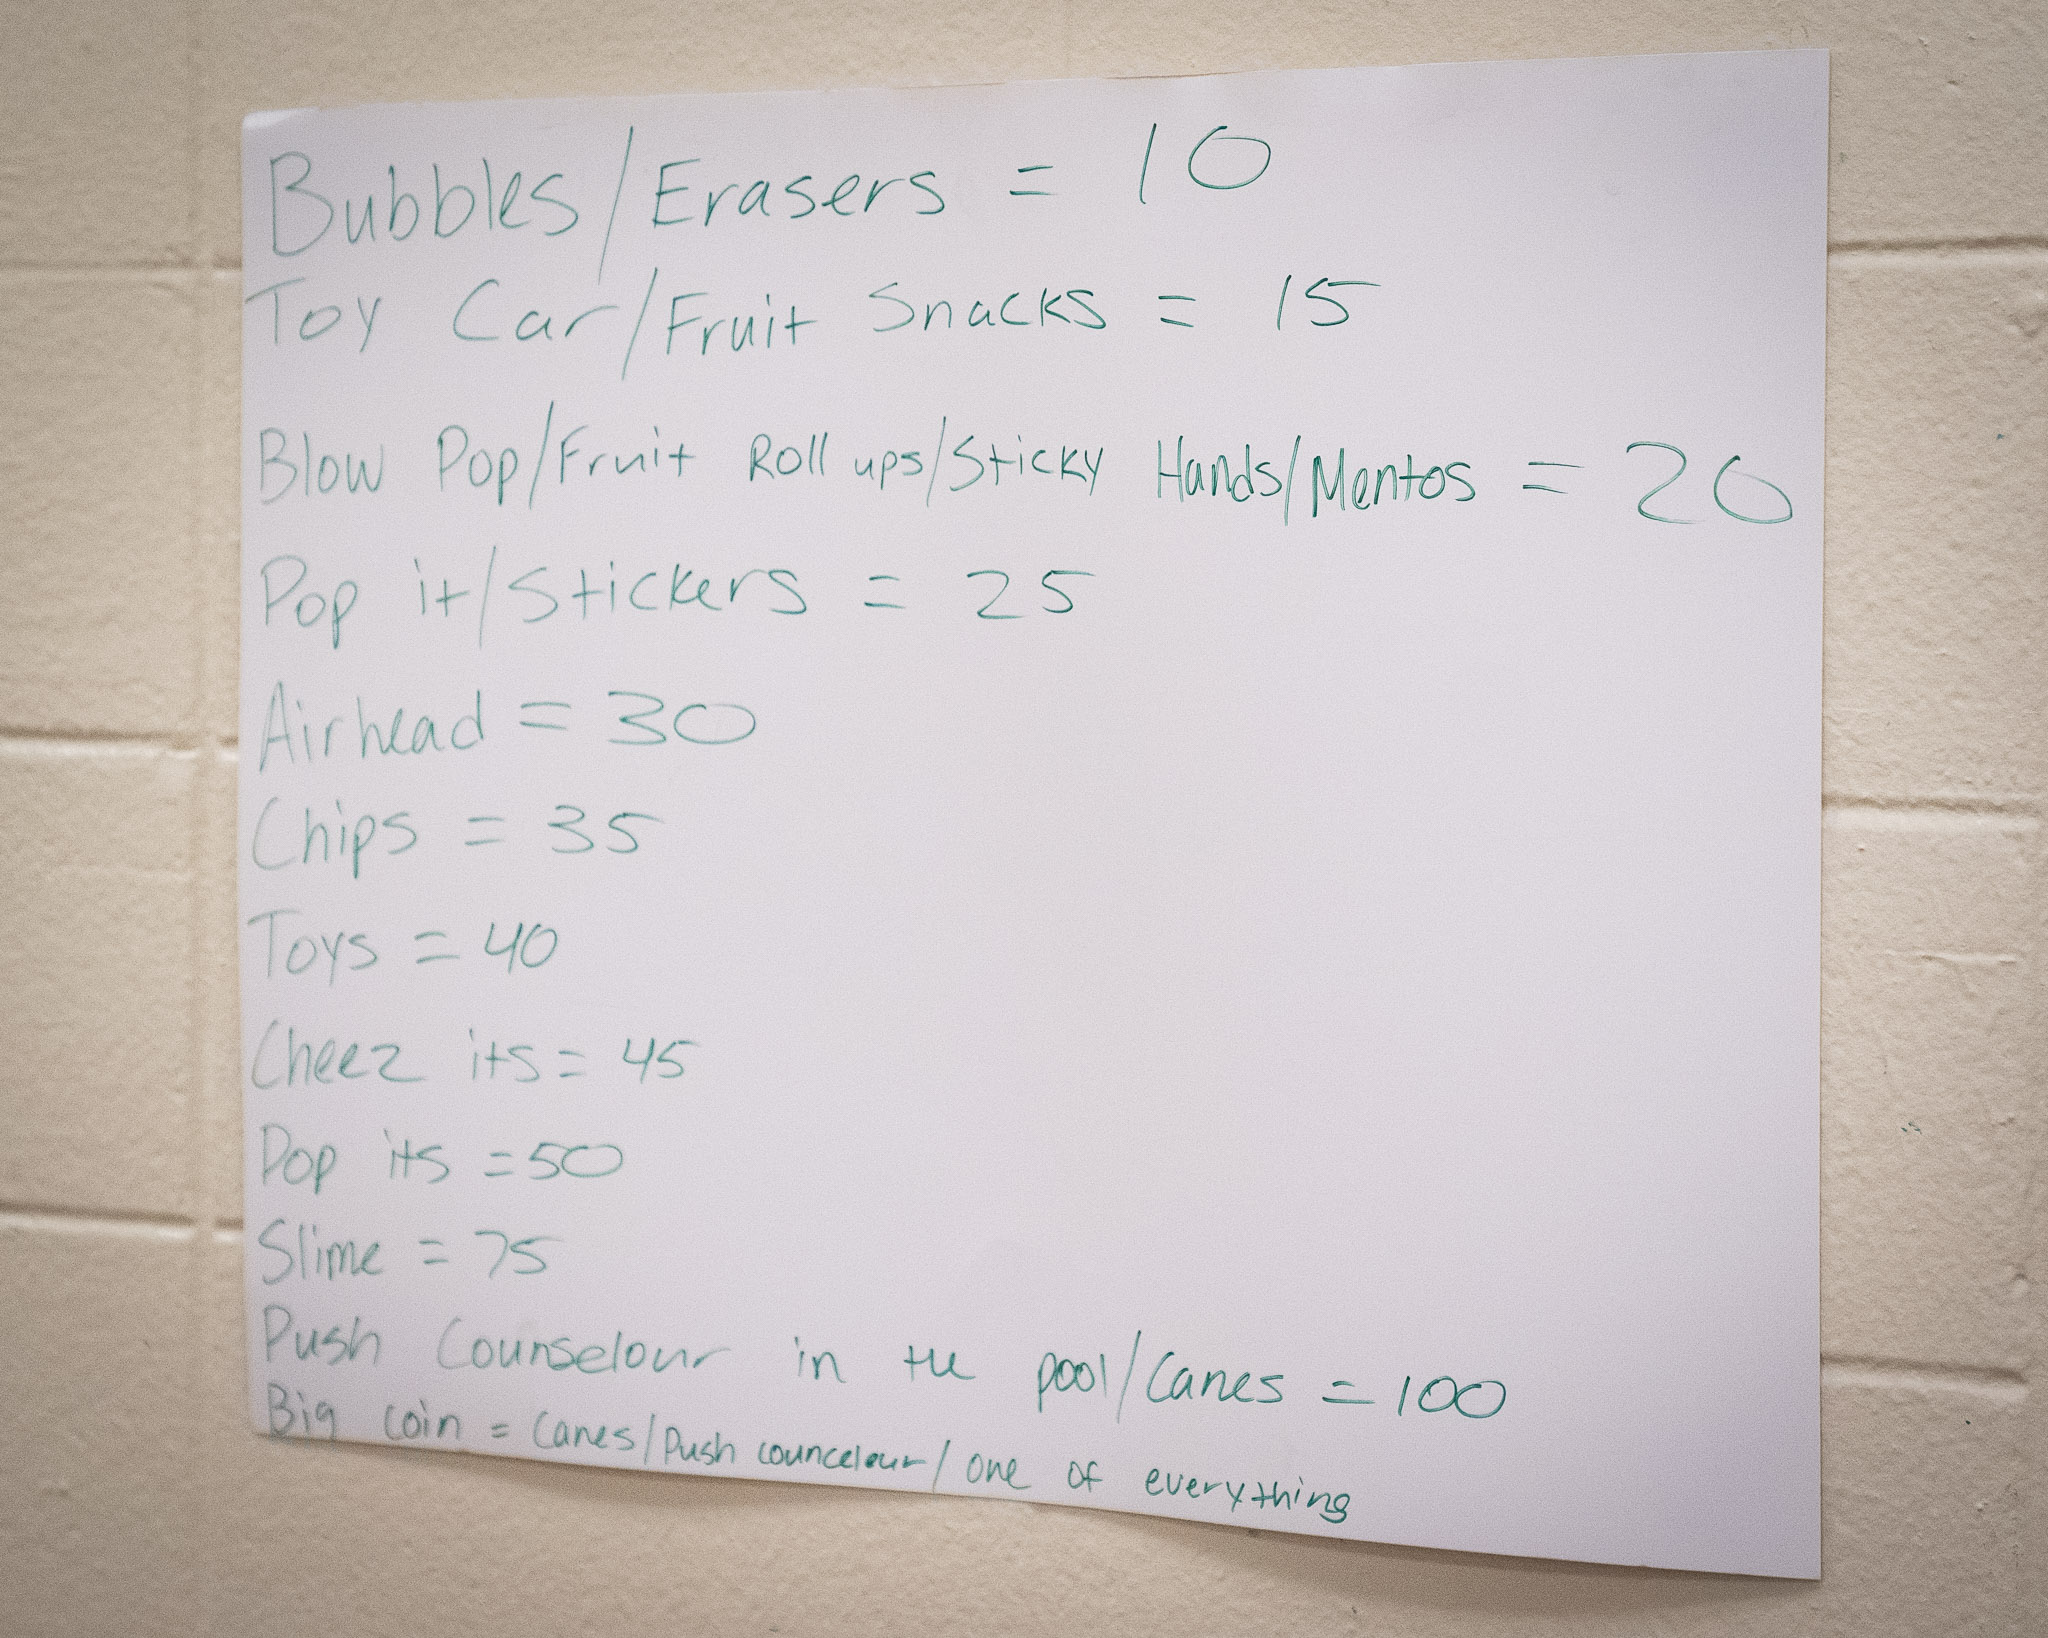 Bubbles/Erasers = 10
Toy Car/Fruit Snacks = 15
Blow Pop/Fruit Roll ups/Sticky Hands/Mentos = 20
Pop it/Stickers = 25
Airhead = 30
Chips = 35
Toys = 40
Cheez its = 45
Pop its = 50
Slime = 75
Push Counselour in the pool/Canes = 100
Big coin = Canes/Push councelour/one of everything